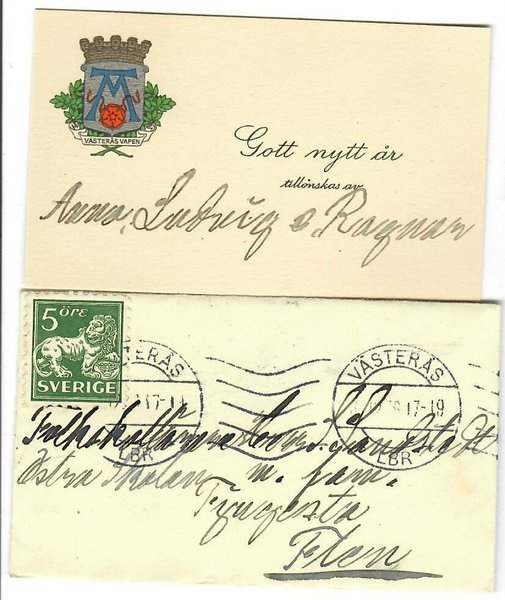 VÄSTERÅS VAPEN
Gott nytt år
tillönskas av
Anna, Ludvig o Ragnar
5 ÖRE
SVERIGE
VÄSTERÅS
17-19
LBR
VÄSTERÅS
17-19
LBR
Folkskolläraren Herr
Östra Skolan m. fam.
Flen